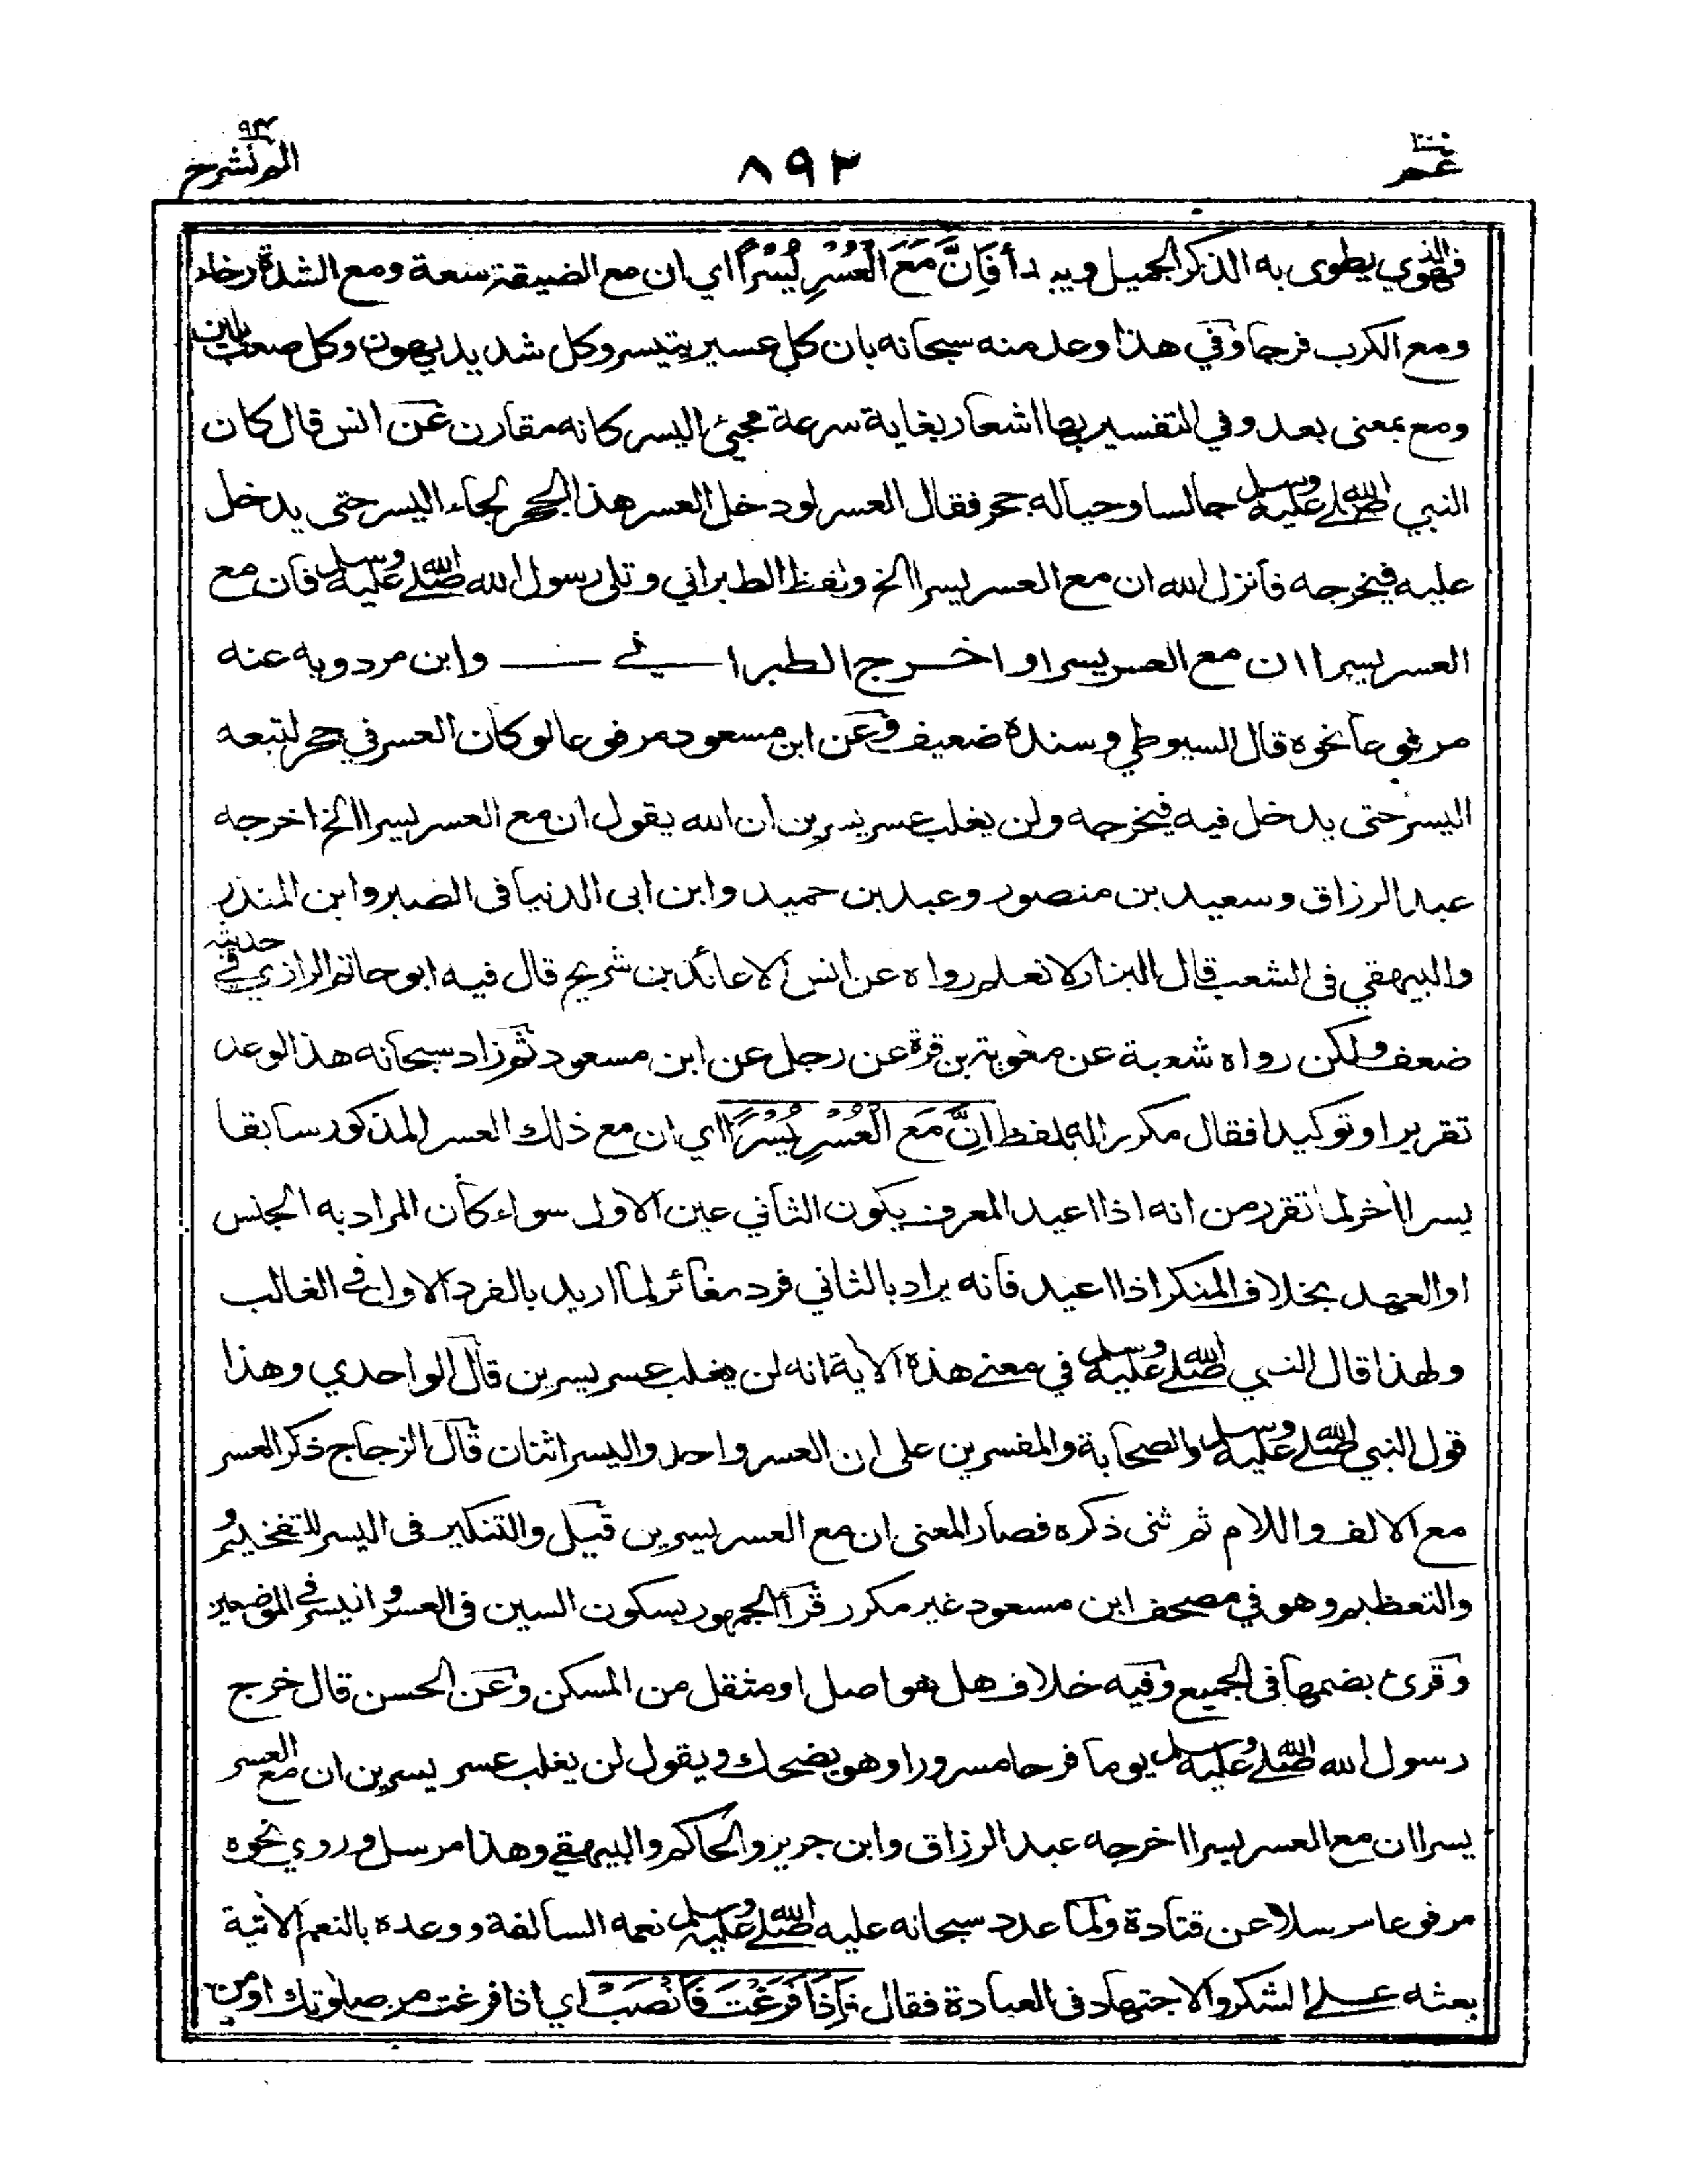 عم
٨٩٢
الم نشرح
٩٤
فهو الذي يطوى به الذكر الجميل ويبدأ فَإِنَّ مَعَ الْعُسْرِ يُسْرًا اي ان مع الضيقة سعة ومع الشدة رخاء
ومع الكرب فرجا وفي هذا وعد منه سبحانه بان كل عسير يتيسر وكل شديد يهون وكل صعب يلين
ومع بمعنى بعد وفي التفسير بها اشعار بغاية سرعة مجيئ اليسر كانه مقارن عن انس قال كان
النبي صلى الله عليه وسلم جالسا وحياله حجر فقال العسر لو دخل العسر هذا الحجر لجاء اليسر حتى يدخل
عليه فيخرجه فانزل الله ان مع العسر يسرا الخ ولفظ الطبراني وتلى رسول الله صلى الله عليه وسلم فان مع
العسر يسرا ان مع العسر يسرا و اخرج الطبراني وابن مردويه عنه
مرفوعا نحوه قال السيوطي وسنده ضعيف وعن ابن مسعود مرفوعا لو كان العسر في حجر لتبعه
اليسر حتى يدخل فيه فيخرجه ولن يغلب عسر يسرين ان الله يقول ان مع العسر يسرا الخ اخرجه
عبد الرزاق وسعيد بن منصور وعبد بن حميد وابن ابى الدنيا فى الصبر وابن المنذر
والبيهقي فى الشعب قال البزار لا نعلم رواه عن انس الا عائذ بن شريح قال فيه ابو حاتم الرازي في حديثه
ضعف ولكن رواه شعبة عن معوية بن قرة عن رجل عن ابن مسعود ثم زاد سبحانه هذا الوعد
تقريرا وتوكيدا فقال مكررا له بلفظ اِنَّ مَعَ الْعُسْرِ يُسْرًا اي ان مع ذلك العسر المذكور سابقا
يسرا اخر لما تقرر من انه اذا اعيد المعرف يكون الثاني عين الاول سواء كان المراد به الجنس
او العهد بخلاف المنكر اذا اعيد فانه يراد بالثاني فرد مغائر لما اريد بالفرد الاول في الغالب
ولهذا قال النبي صلى الله عليه وسلم في معنى هذه الاية انه لن يغلب عسر يسرين قال الواحدي وهذا
قول النبي صلى الله عليه وسلم والصحابة والمفسرين على ان العسر واحد واليسر اثنان قال الزجاج ذكر العسر
مع الالف واللام ثم ثنى ذكره فصار المعنى ان مع العسر يسرين قيل والتنكير فى اليسر للتفخيم
والتعظيم وهو في مصحف ابن مسعود غير مكرر قرأ الجمهور بسكون السين فى العسر واليسر في الموضعين
وقرئ بضمها فى الجميع وفيه خلاف هل هو اصل او مثقل من المسكن وعن الحسن قال خرج
رسول الله صلى الله عليه وسلم يوما فرحا مسرورا وهو يضحك ويقول لن يغلب عسر يسرين ان مع العسر
يسرا ان مع العسر يسرا اخرجه عبد الرزاق وابن جرير والحاكم والبيهقي وهذا مرسل وروي نحوه
مرفوعا مرسلا عن قتادة ولما عدد سبحانه عليه صلى الله عليه وسلم نعمه السالفة ووعده بالنعم الاتية
بعثه على الشكر والاجتهاد فى العبادة فقال فَإِذَا فَرَغْتَ فَانْصَبْ اي اذا فرغت من صلوتك او من